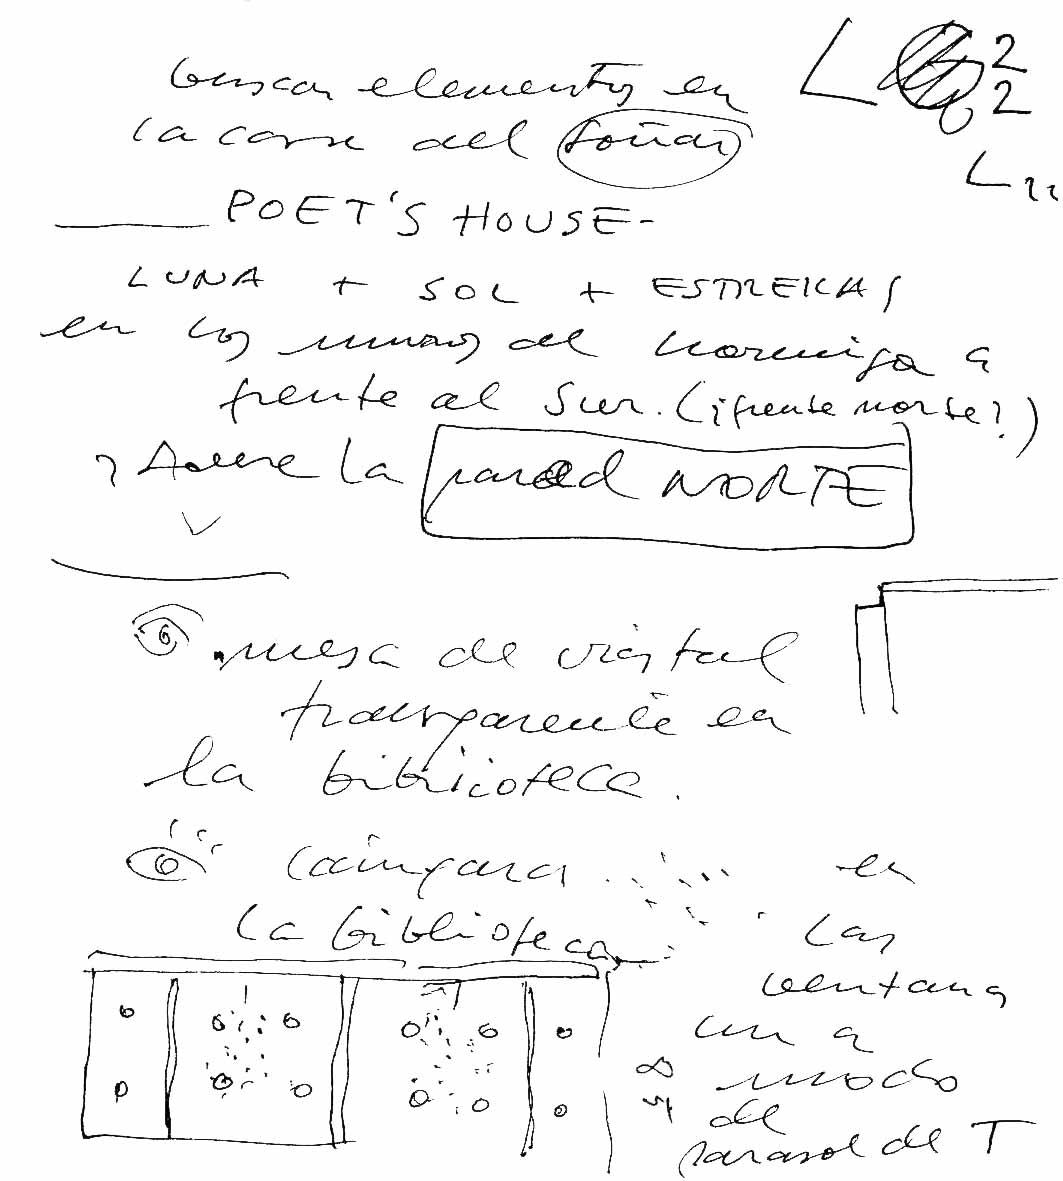 buscar elementos en
la casa del soñar
POET'S HOUSE-
LUNA + SOL + ESTRELLAS
en los muros del hormigon a
frente al sur. (¿frente norte?)
la pared NORTE
mesa de cristal
transparente en
la biblioteca.
lámpara en
la biblioteca las
ventana
un a
modo
de
parasol de T
L 2
2
L 22